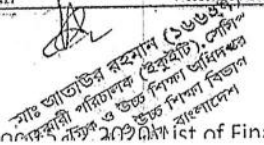 মোঃ আতাউর রহমান (১৬৬৬
সহকারী পরিচালক (ইকুইটি), সেসিপ
মাধ্যমিক ও উচ্চ শিক্ষা অধিদপ্তর
উচ্চ শিক্ষা বিভাগ
বাংলাদেশ
2020 ist of Fina